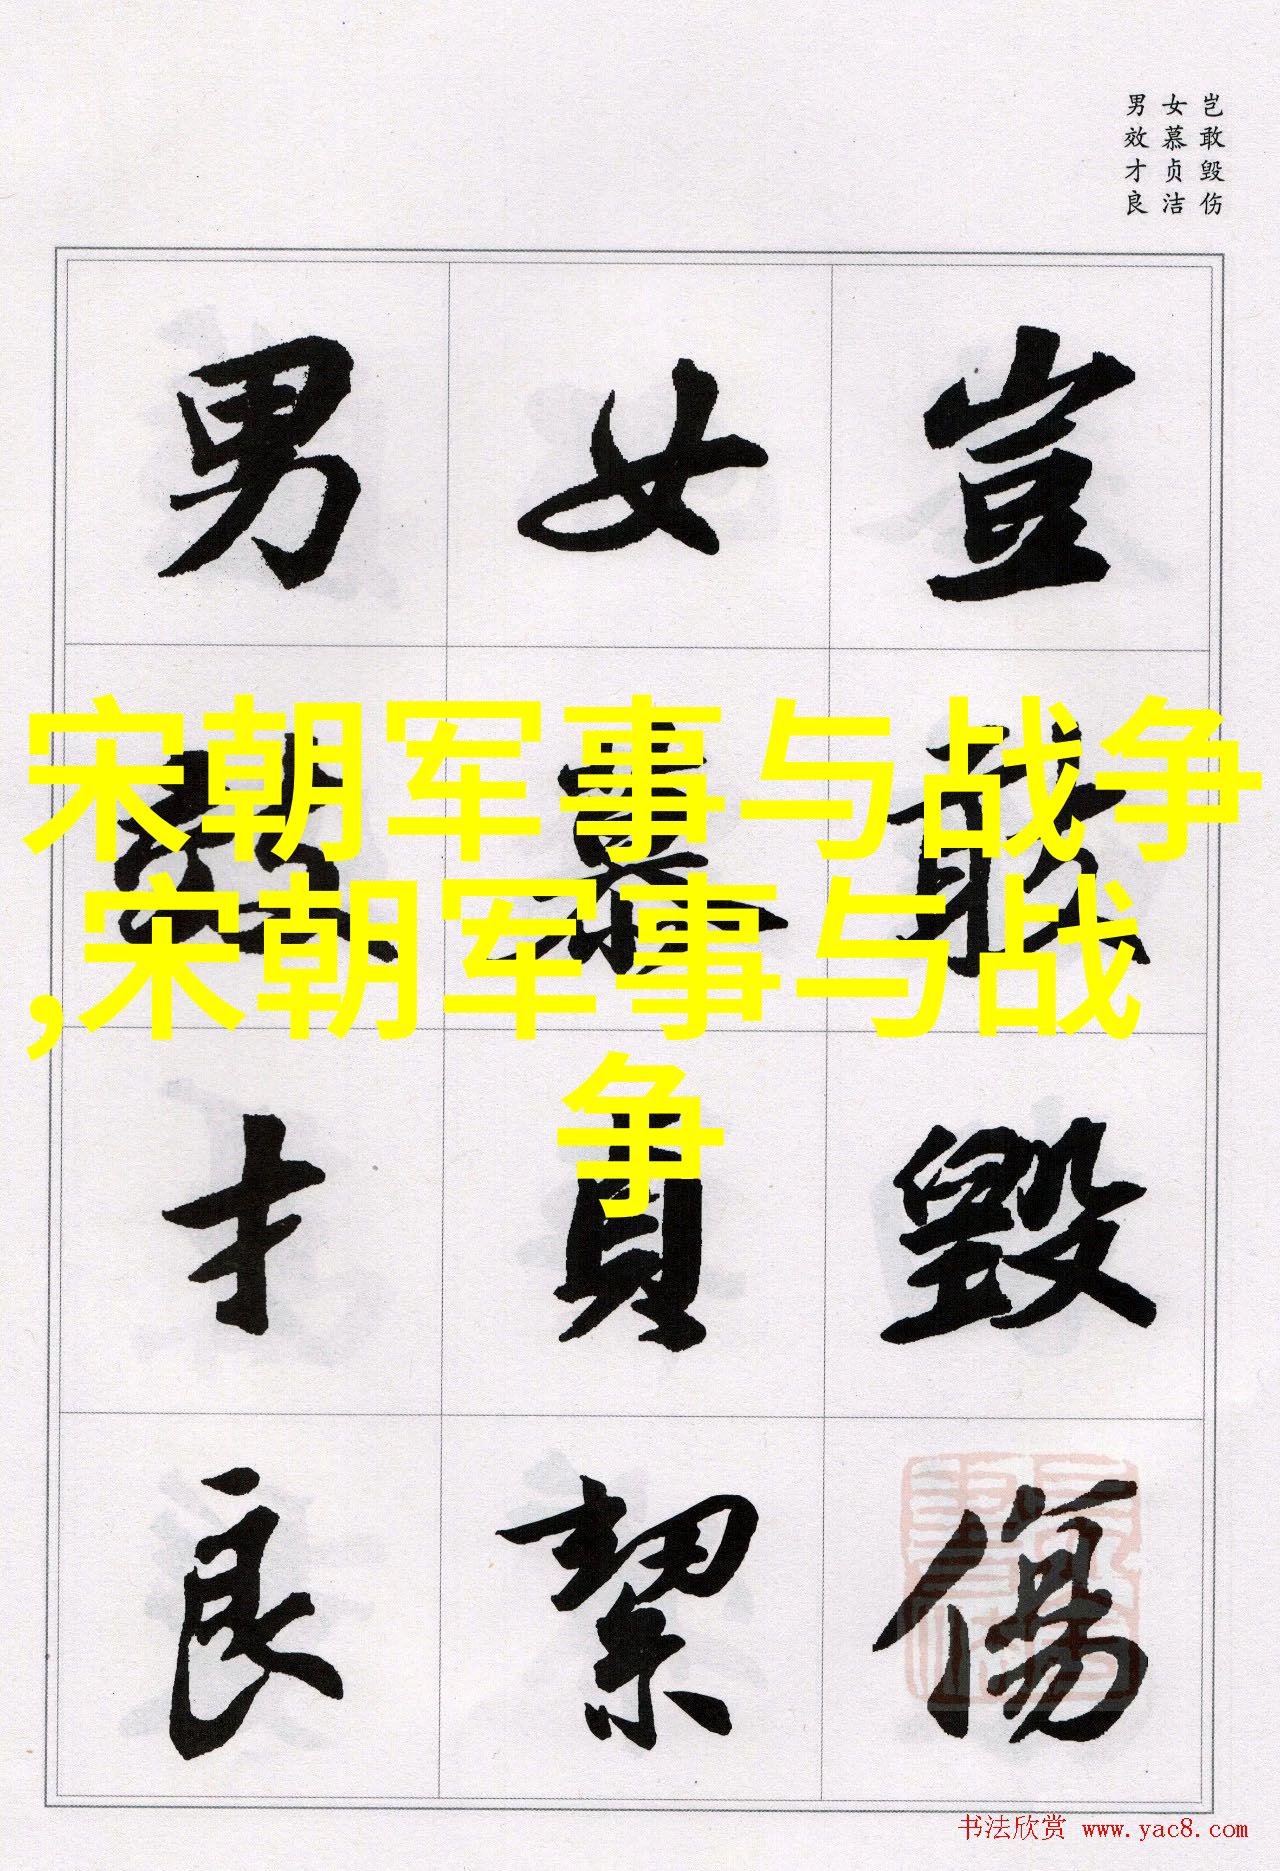 岂敢毁伤
女慕贞洁
男效才良
豈敢毀傷
女慕貞絜
男效才良
宋朝军事与战争
,宋朝军事与战
争
书法欣赏 www.yac8.com